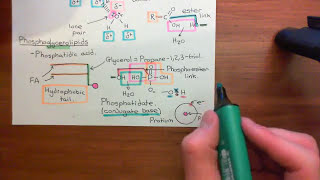 δ-
N
δ+
δ+
lone
pair
δ+
δ+
R
C
O
ester
link
OH
H
H₂O
Phosphoglycerolipids
-Phosphatidic acid.
Glycerol = Propane-1,2,3-triol.
FA
OH
HO
P
O
OH
Phosphoester
link
H₂O
-O H
Hydrophobic
tail.
Phosphatidate
(conjugate base)
e-
Proton